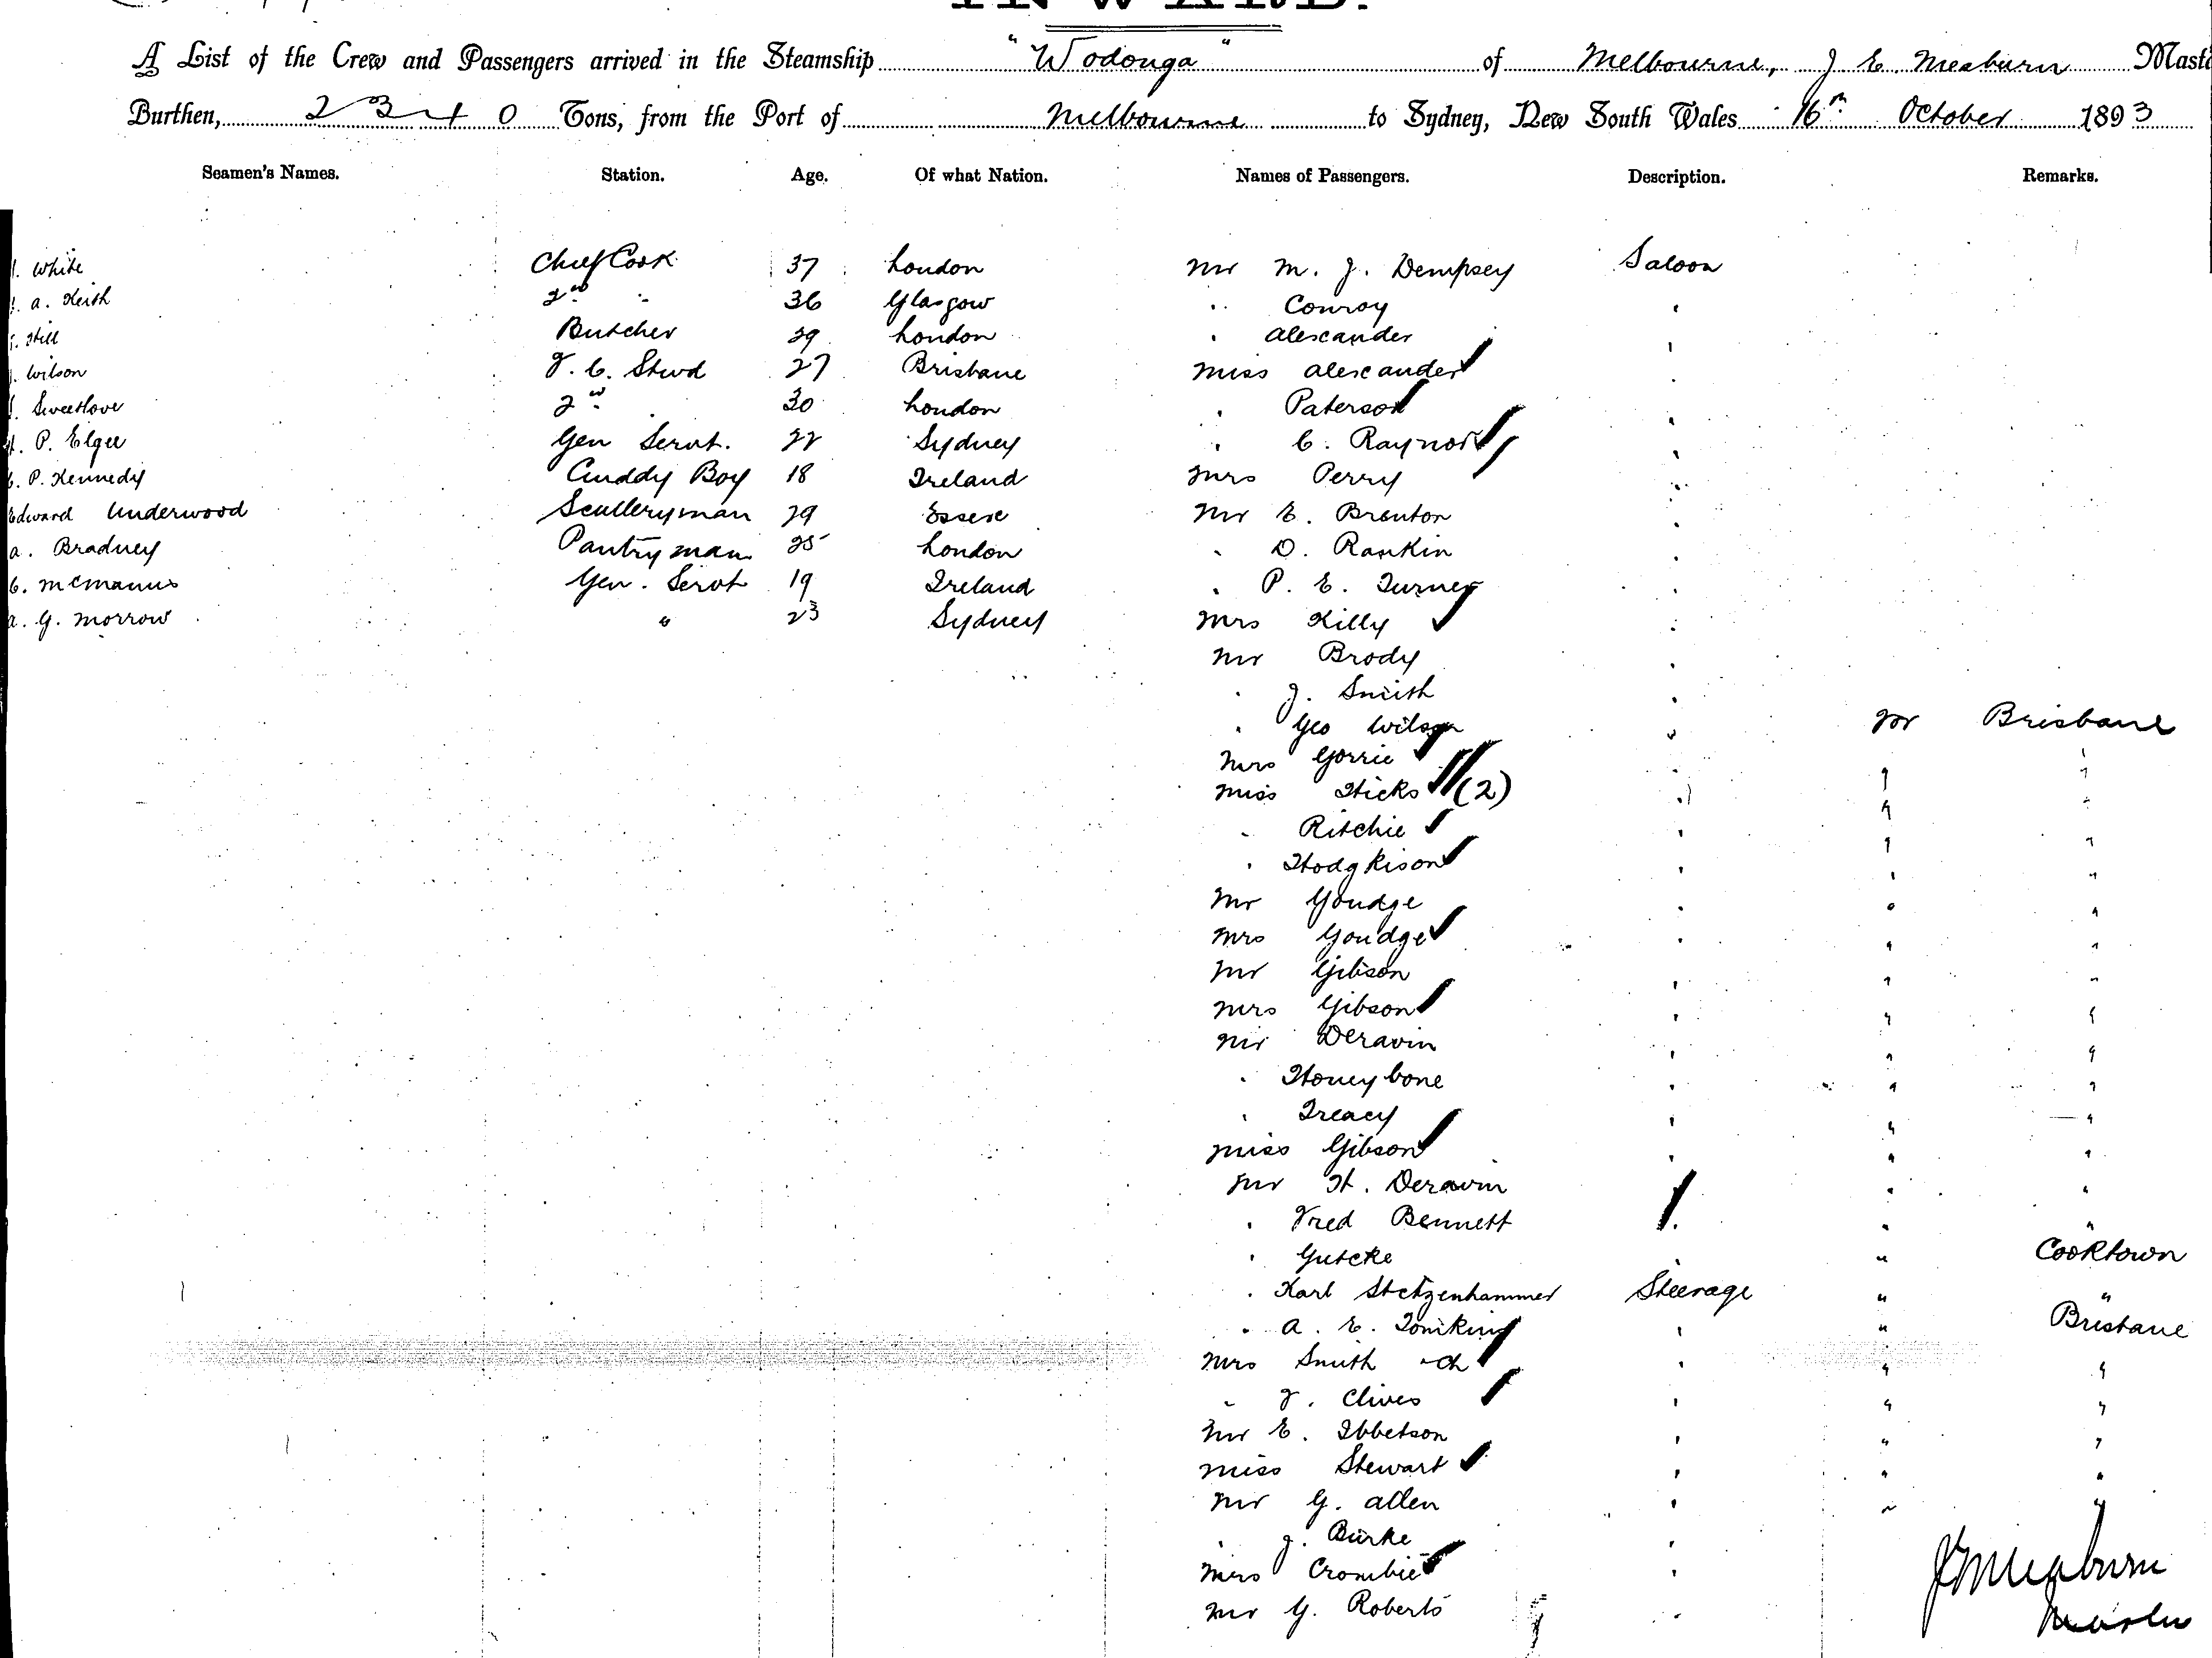 INWARD.
A List of the Crew and Passengers arrived in the Steamship "Wodonga" of Melbourne, J E. Meaburn Maste
Burthen, 2340 Tons, from the Port of Melbourne to Sydney, New South Wales 16th October 1893
Seamen's Names. Station. Age. Of what Nation. Names of Passengers. Description. Remarks.
White Chief Cook 37 London Mr M. J. Dempsey Saloon
A. Keith 2nd " 36 Glasgow " Conroy "
Hill Butcher 29 London " Alexander "
Wilson F. C. Stwd 27 Brisbane Miss Alexander "
Sweetlove 2nd " 30 London " Paterson "
H. P. Elgee Gen Servt. 22 Sydney " C. Raynor "
C. P. Kennedy Cuddy Boy 18 Ireland Mrs Perry "
Edward Underwood Sculleryman 29 Essex Mr E. Brenton "
A. Bradney Pantryman 25 London " D. Rankin "
C. McManus Gen. Servt 19 Ireland " P. E. Turner "
A. G. Morrow " 23 Sydney Mrs Killy "
Mr Brody "
" J. Smith "
" Geo Wilson " For Brisbane
Mrs Gorrie " " "
Miss Hicks (2) " " "
" Ritchie " " "
" Hodgkison " " "
Mr Goudge " " "
Mrs Goudge " " "
Mr Gibson " " "
Mrs Gibson " " "
Mr Deravin " " "
" Honeybone " " "
" Treacy " " "
Miss Gibson " " "
Mr H. Deravin " "
" Fred Bennett " " "
" Gutcke " " Cooktown
" Karl Stetzenhammer Steerage " "
" A. E. Tomkins " " Brisbane
Mrs Smith & ch " " "
" F. Clives " " "
Mr E. Ibbetson " " "
Miss Stewart " " "
Mr G. Allen " " "
" J. Burke "
Mrs Crombie "
Mr G. Roberts "
J E Meaburn
Master